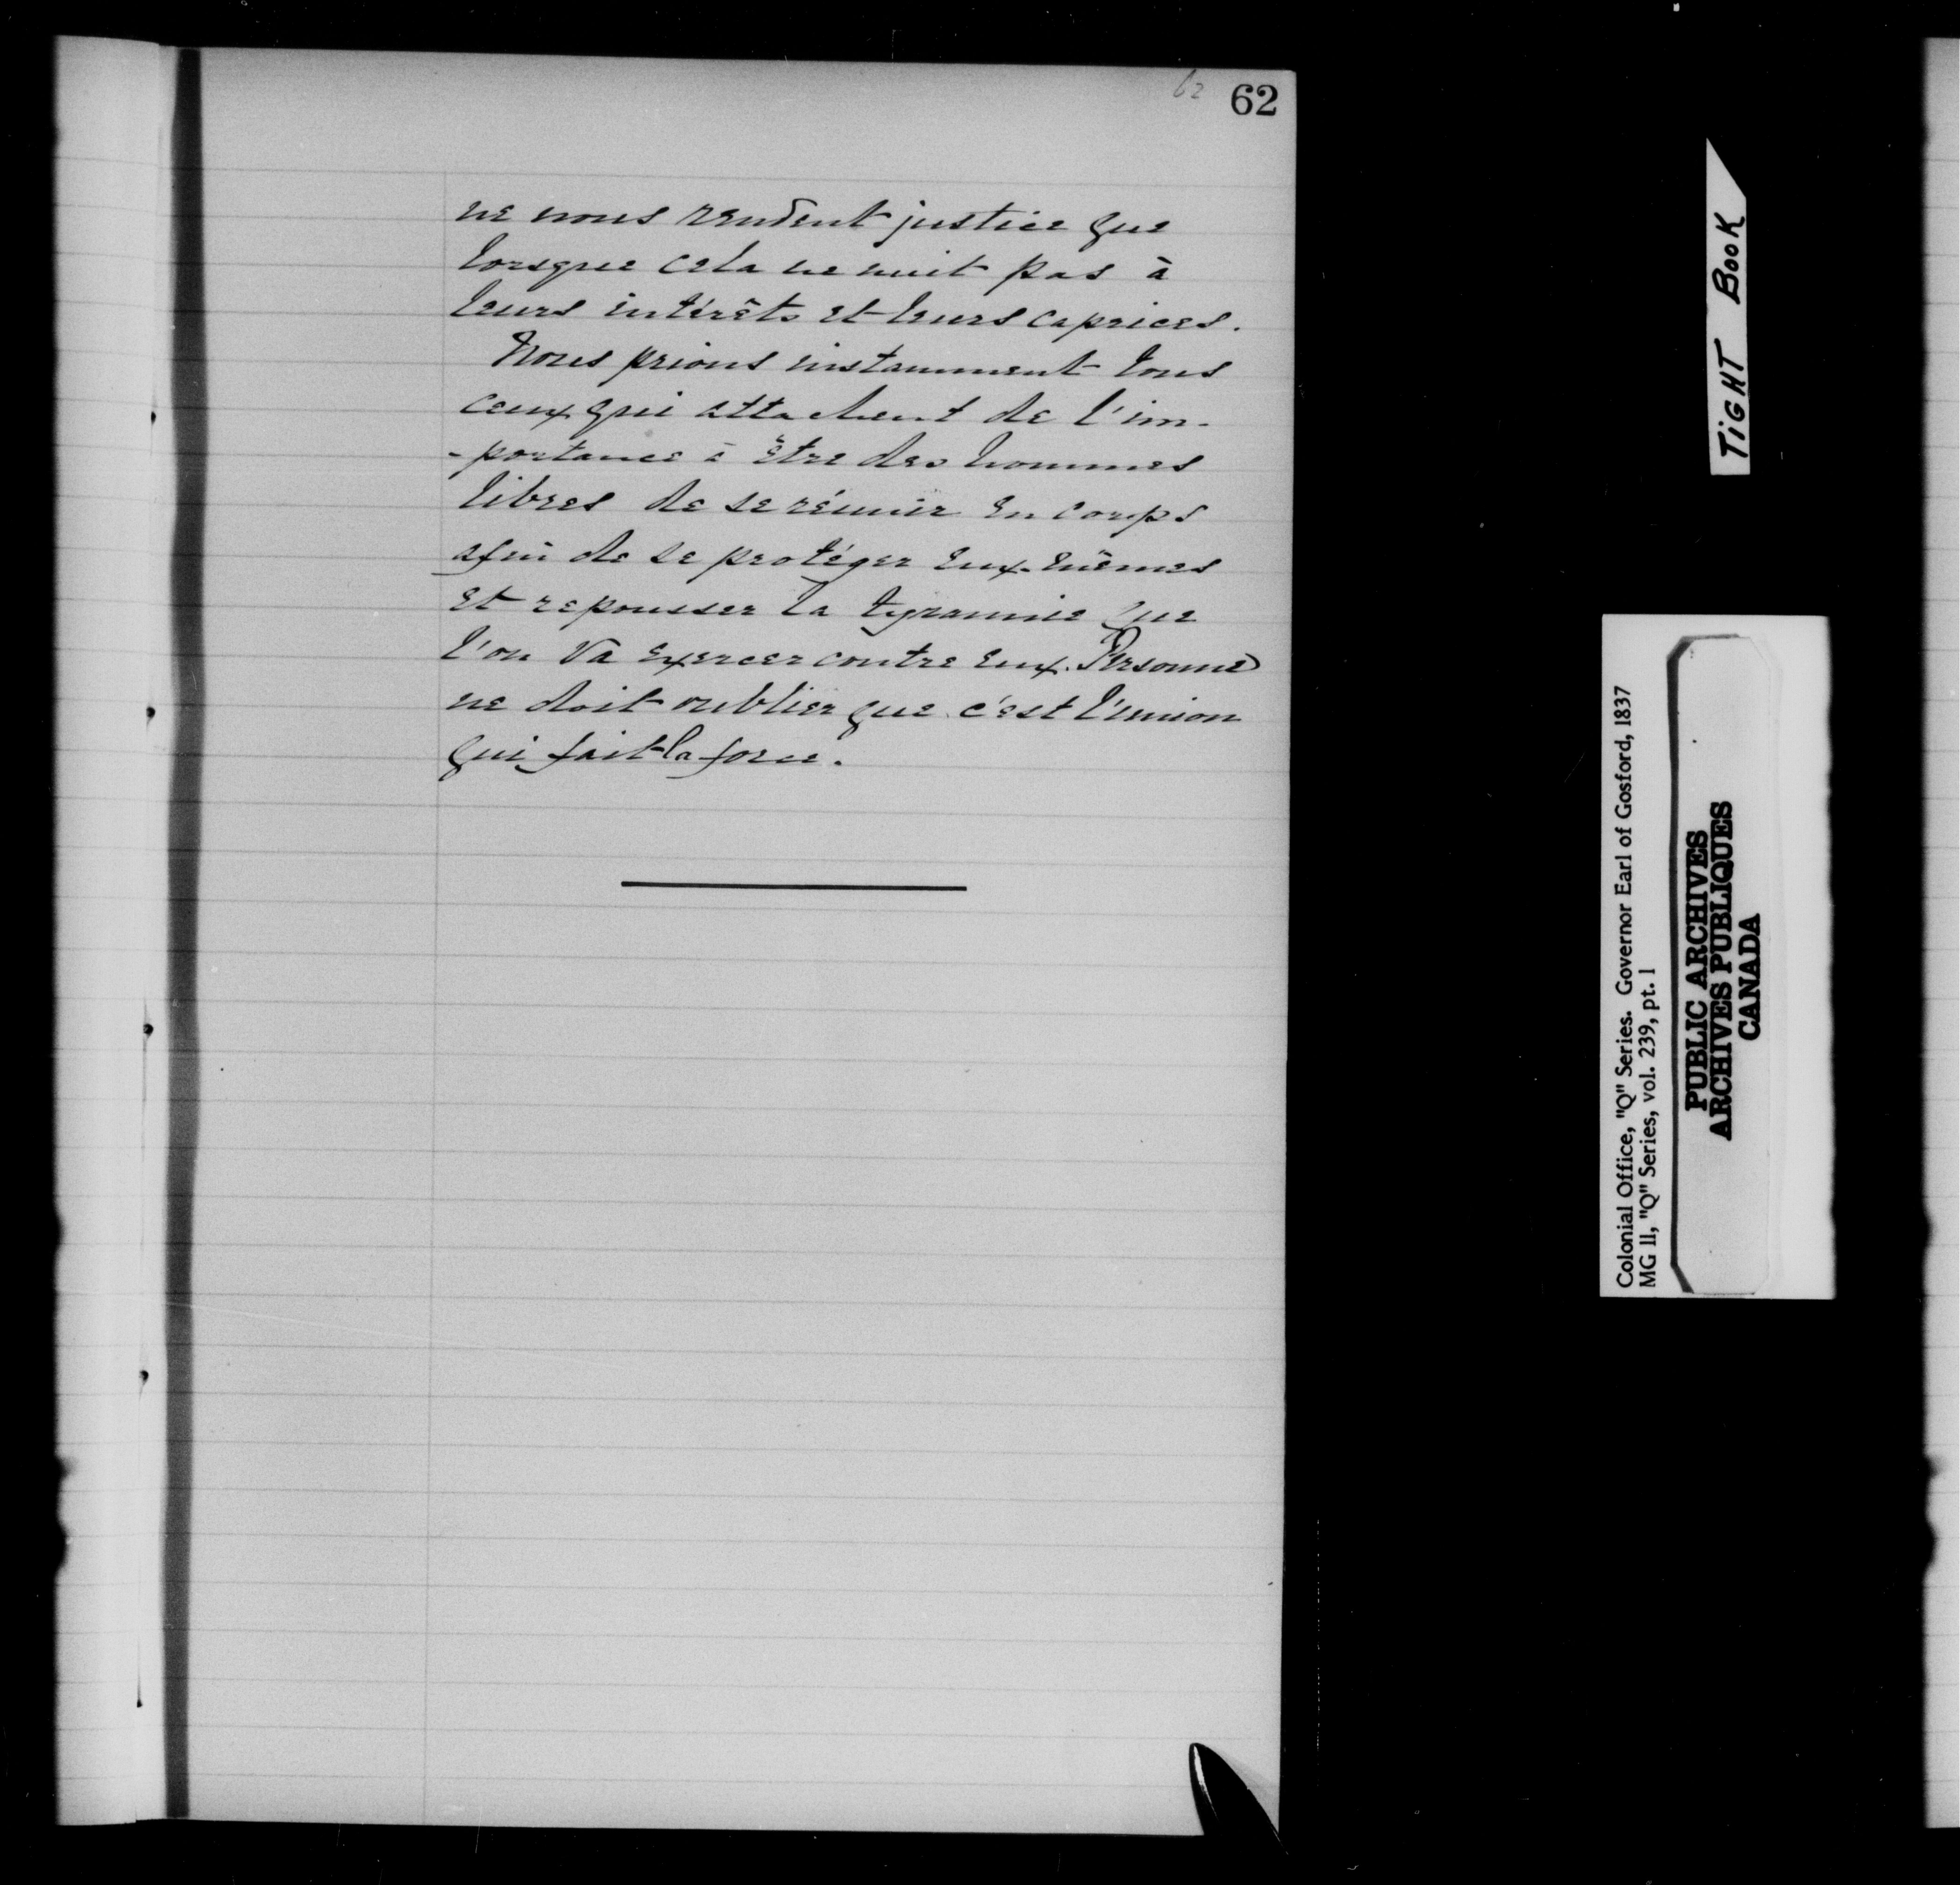 62 62
ne nous rendent justice que
lorsque cela ne nuit pas à
leurs intérêts et leurs caprices.
Nous prions instamment tous
ceux qui attachent de l'im-
-portance à être des hommes
libres de se réunir en corps
afin de se protéger eux-mêmes
et repousser la tyrannie que
l'on va exercer contre eux. Personne
ne doit oublier que c'est l'union
qui fait la force.
TIGHT BOOK
Colonial Office, "Q" Series. Governor Earl of Gosford, 1837
MG 11, "Q" Series, vol. 239, pt. 1
PUBLIC ARCHIVES
ARCHIVES PUBLIQUES
CANADA